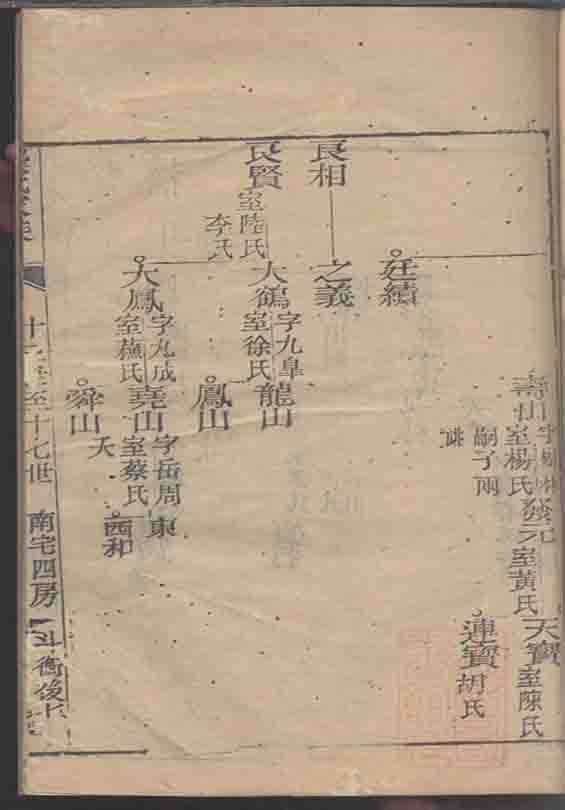 壽山
室楊氏
嗣子兩
祧
發元
室黃氏
天寶
室陳氏
連寶
胡氏
廷績
良相
之義
良賢
室陸氏
李氏
大鶴
字九皋
室徐氏
龍山
鳳山
大鳳
字九成
室蘇氏
堯山
字岳周
室蔡氏
東
西和
舜山
夭
至十七世
南宅四房
斗衡後